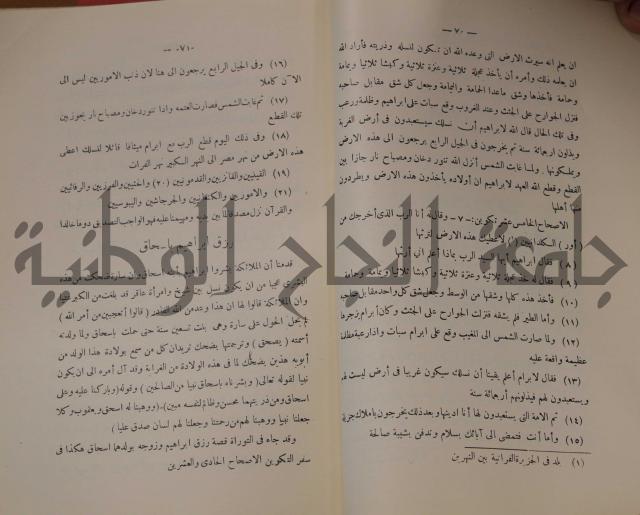 — ٧٠ —
ان يعلم انه سيرث الارض التى وعده الله ان تكون لنسله وذريته فأراد الله
ان يعلمه ذلك وأمره أن يأخذ عجلة ثلاثية وعنزة ثلاثية وكبشا ثلاثيا ويمامة
وحمامة فأخذها وشق ماعدا الحمامة واليمامة وجعل كل شق مقابل صاحبه
فنزل الجوارح على الجثث وعند الغروب وقع سبات على ابراهيم وظلمة ورعب
وفى تلك الحال قال الله لابراهيم أن نسلك سيستعبدون فى أرض الغربة
ويذلون اربعمائة سنة ثم يخرجون فى الجيل الرابع يرجعون الى هذه الارض
ويملكونها . ولما غابت الشمس أنزل الله تنور دخان ومصباح نار جازا بين
القطع وقطع الله العهد لابراهيم ان أولاده يأخذون هذه الارض ويطردون
منها أهلها
الاصحاح الخامس عشر تكوين :ـ ٧ ـ وقال له أنا الرب الذى أخرجك من
( أور ) الكلدانيين (١) لأعطيك هذه الارض لترثها
( ٨ ) فقال ابراهيم أيها السيد الرب بماذا أعلم انى أرثها
( ٩ ) فقال له خذ عجلة ثلاثية وعنزة ثلاثية وكبشا ثلاثيا ويمامة وحمامة
(١٠) فأخذ هذه كلها وشقها من الوسط وجعل شق كل واحد مقابل صاحبه
(١١) وأما الطير فلم يشقه فنزلت الجوارح على الجثث وكان أبرام يزجرها
(١٢) ولما صارت الشمس الى المغيب وقع على ابرام سبات واذا رعبة مظلمة
عظيمة واقعة عليه
(١٣) فقال لابرام أعلم يقينا أن نسلك سيكون غريبا فى أرض ليست لهم
ويستعبدون لهم فيذلونهم أربعمائة سنة
(١٤) ثم الامة التى يستعبدون لها أنا ادينها وبعد ذلك يخرجون باملاك جزيلة
(١٥) وأما أنت فتمضى الى آبائك بسلام وتدفن بشيبة صالحة
(١) بلد فى الجزيرة الفراتية بين النهرين
— ٧١ —
(١٦) وفى الجيل الرابع يرجعون الى هنا لان ذنب الاموريين ليس الى
الآن كاملا
(١٧) ثم غابت الشمس فصارت العتمة واذا تنور دخان ومصباح نار يجوز بين
تلك القطع
(١٨) وفى ذلك اليوم قطع الرب مع ابرام ميثاقا قائلا لنسلك اعطى
هذه الارض من نهر مصر الى النهر الكبير نهر الفرات
(١٩) القينيين والقنزيين والقدمونيين (٢٠) والحثيين والفرزيين والرفائيين
(٢١) والاموريين والكنعانيين والجرجاشيين واليبوسيين
والقرآن نزل مصدقا لما بين يديه ومهيمنا عليه فهو الواجب التصديق دوما خالدا
رزق ابراهيم باسحاق
قدمنا أن الملائكة بشروا ابراهيم باسحاق وان سارة ضحكت من هذه
البشرى عجبا من ان يكون نسل بين شيخ وامرأة عاقر قد بلغت من الكبر
وان الملائكة قالوا لها ان هذا وعد من الله القدير ( قالوا أتعجبين من أمر الله )
لم يحل الحول على سارة وهى بنت تسعين سنة حتى حملت باسحاق ولما ولدته
أسمته ( يصحق ) وترجمتها يضحك تريد ان كل من سمع بولادة هذا الولد من
أبويه هذين يضحك لما فى هذه الولادة من الغرابة وقد آل أمره الى ان يكون
نبيا لقوله تعالى ( وبشرناه باسحاق نبيا من الصالحين ) وقوله ( وباركنا عليه وعلى
اسحاق ومن ذريتهما محسن وظالم لنفسه مبين ) ـ ( ووهبنا له اسحق ويعقوب وكلا
جعلنا نبيا ووهبنا لهم من رحمتنا وجعلنا لهم لسان صدق عليا )
وقد جاء فى التوراة قصة رزق ابراهيم وزوجه بولدهما اسحاق هكذا فى
سفر التكوين الاصحاح الحادى والعشرين
جامعة النجاح الوطنية